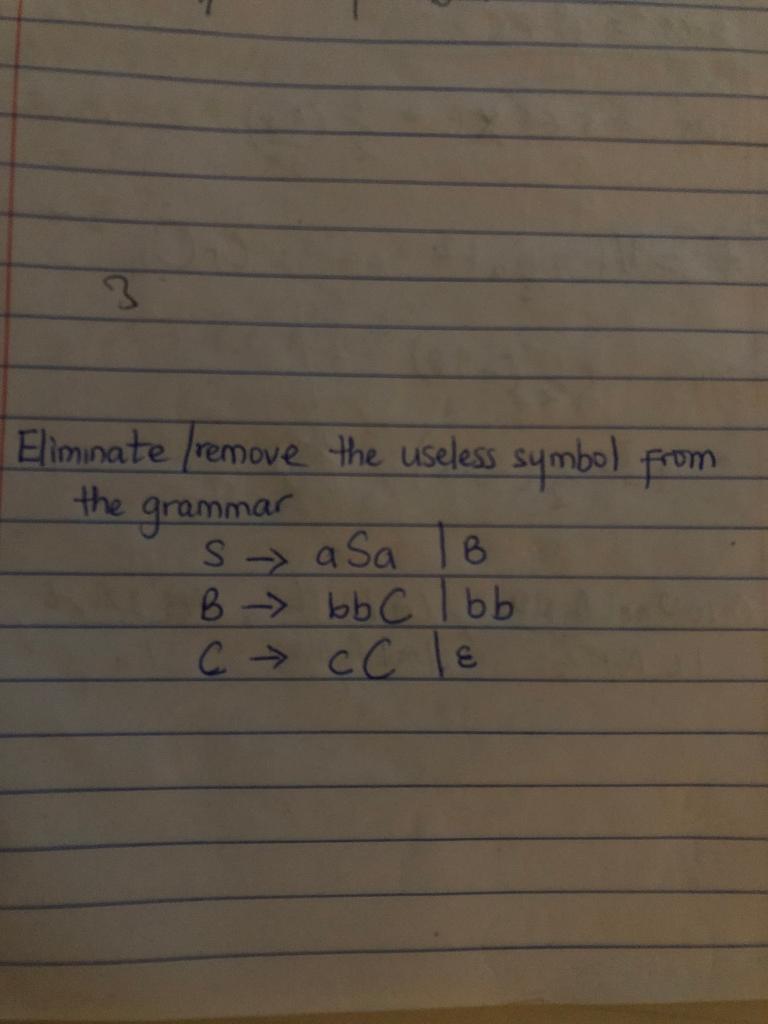 3
Eliminate /remove the useless symbol from
the grammar
S → aSa | B
B → bbC | bb
C → cC | ε